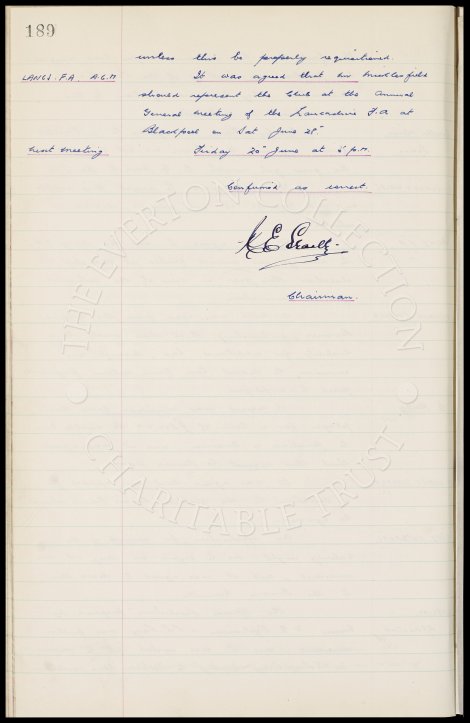 189
unless this be properly requisitioned.
LANCS. F.A. A.G.M. It was agreed that Mr Micklesfield
should represent the Club at the Annual
General Meeting of the Lancashire F.A. at
Blackpool on Sat June 28th
Next Meeting Friday 20th June at 5 p.m.
Confirmed as correct
Chairman.
THE EVERTON COLLECTION
CHARITABLE TRUST